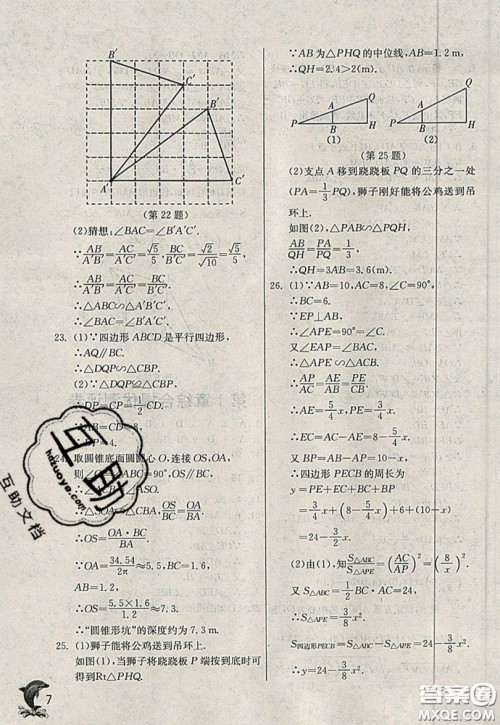 B′
B′
C′
A′
C′
(第22题)
(2)猜想:∠BAC=∠B′A′C′.
∵AB/A′B′=AC/A′C′=√5/5,BC/B′C′=√2/√10=√5/5,
∴AB/A′B′=AC/A′C′=BC/B′C′.
∴△ABC∽△A′B′C′.
∴∠BAC=∠B′A′C′.
23. (1)∵四边形ABCD是平行四边形,
∴AQ∥BC.
∴△DQP∽△CBP.
(2)∵△DQP≌△CBP,
∴DP=CP=1/2CD.
=8,
24. 取圆锥底面圆圆心O,连接OS,OA,
=90°,
ASO.
∴OS/BA=OA/BA,
∴OS=OA·BC/BA.
∵OA=34.54/2π≈5.5,BC=1.6,
AB=1.2,
∴OS=5.5×1.6/1.2≈7.3.
∴“圆锥形坑”的深度约为7.3 m.
25. (1)狮子能将公鸡送到吊环上.
如图(1),当狮子将跷跷板P端按到底时可
得到Rt△PHQ.
7
∵AB为△PHQ的中位线,AB=1.2 m,
∴QH=2.4>2(m).
Q
A
P
B
H
(1)
Q
A
P
B
H
(2)
(第25题)
(2)支点A移到跷跷板PQ的三分之一处
(PA=1/3PQ),狮子刚好能将公鸡送到吊
环上.
如图(2),△PAB∽△PQH,
AB/QH=PA/PQ=1/3,
∴QH=3AB=3.6(m).
26. (1)∵AB=10,AC=8,∠C=90°,
∴BC=6.
∵EP⊥AB,
∴∠APE=90°=∠C.
又∵∠EAP=∠BAC,
∴△AEP∽△ABC.
∴AP/AC=AE/AB=PE/BC.
∴x/8=AE/10=PE/6.
∴AE=5/4x,PE=3/4x.
∴EC=AC-AE=8-5/4x.
又BP=AB-AP=10-x.
∴四边形PECB的周长为
y=PE+EC+BP+BC
=3/4x+(8-5/4x)+6+(10-x)
=24-3/2x.
(2)由(1),知S△ABC/S△APE=(AC/AP)²=(8/x)².
又∵S△ABC=1/2BC·AC=24,
∴S△APE=3/8x².
S四边形PECB=S△ABC-S△APE=24-3/8x².
互助
hdzuoye.com
互助文档
答案圈
MXQE.COM